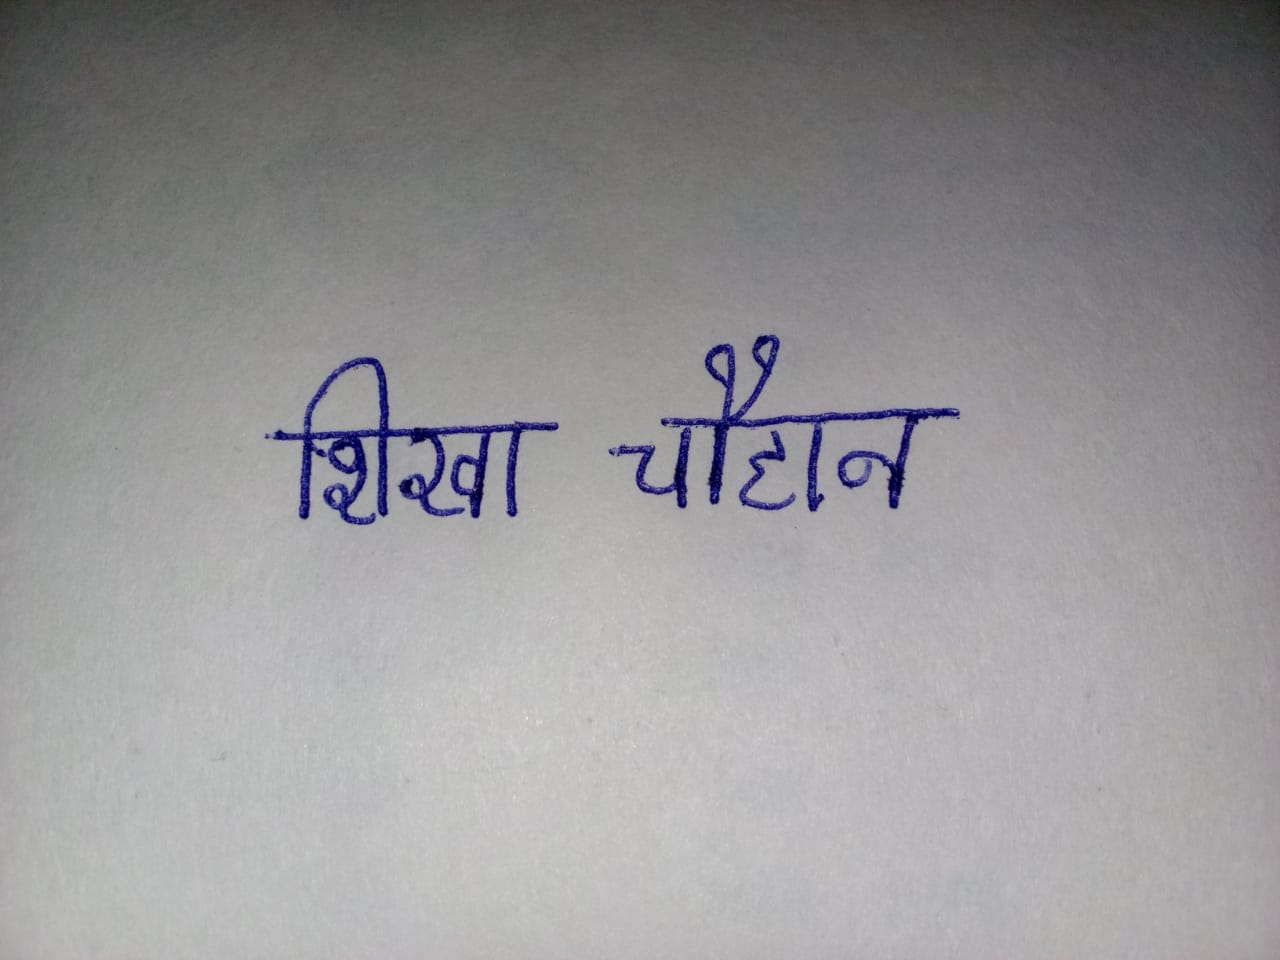 शिखा चौहान